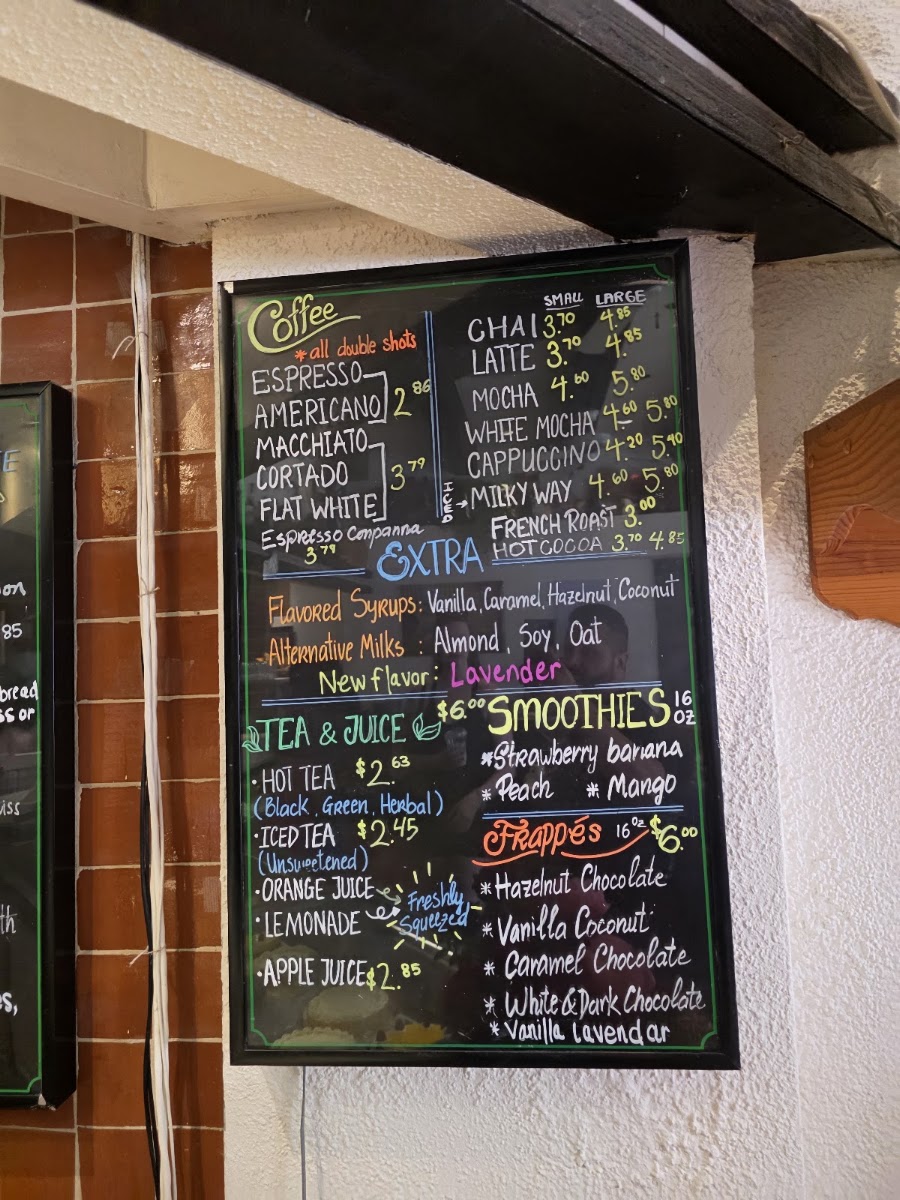 Coffee
*all double shots
ESPRESSO
AMERICANO 2.86
MACCHIATO
CORTADO 3.79
FLAT WHITE
Espresso Conpanna
3.79
SMALL LARGE
CHAI 3.70 4.85
LATTE 3.70 4.85
MOCHA 4.60 5.80
WHITE MOCHA 4.60 5.80
CAPPUCCINO 4.20 5.40
MILKY WAY 4.60 5.80
FRENCH ROAST 3.00
HOT COCOA 3.70 4.85
EXTRA
Flavored Syrups: Vanilla, Caramel, Hazelnut, Coconut
Alternative Milks : Almond, Soy, Oat
New flavor: Lavender
TEA & JUICE
·HOT TEA $2.63
(Black, Green, Herbal)
·ICED TEA $2.45
(Unsweetened)
·ORANGE JUICE
·LEMONADE
Freshly
Squeezed
·APPLE JUICE $2.85
$6.00 SMOOTHIES 16 OZ
*Strawberry banana
*Peach *Mango
Frappés 16oz $6.00
*Hazelnut Chocolate
*Vanilla Coconut
*Caramel Chocolate
*White & Dark Chocolate
*Vanilla Lavendar
85
bread
ss or
iss
th
es,